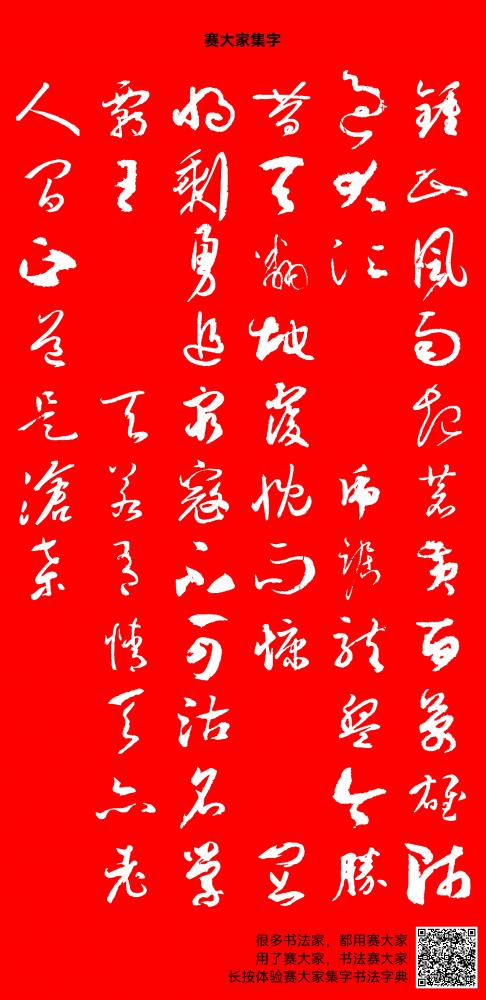 赛大家集字
鍾山風雨起蒼黃百萬雄師
過大江 虎踞龍盤今勝
昔天翻地覆慨而慷 宜
將剩勇追窮寇不可沽名學
霸王 天若有情天亦老
人間正道是滄桑
很多书法家，都用赛大家
用了赛大家，书法赛大家
长按体验赛大家集字书法字典